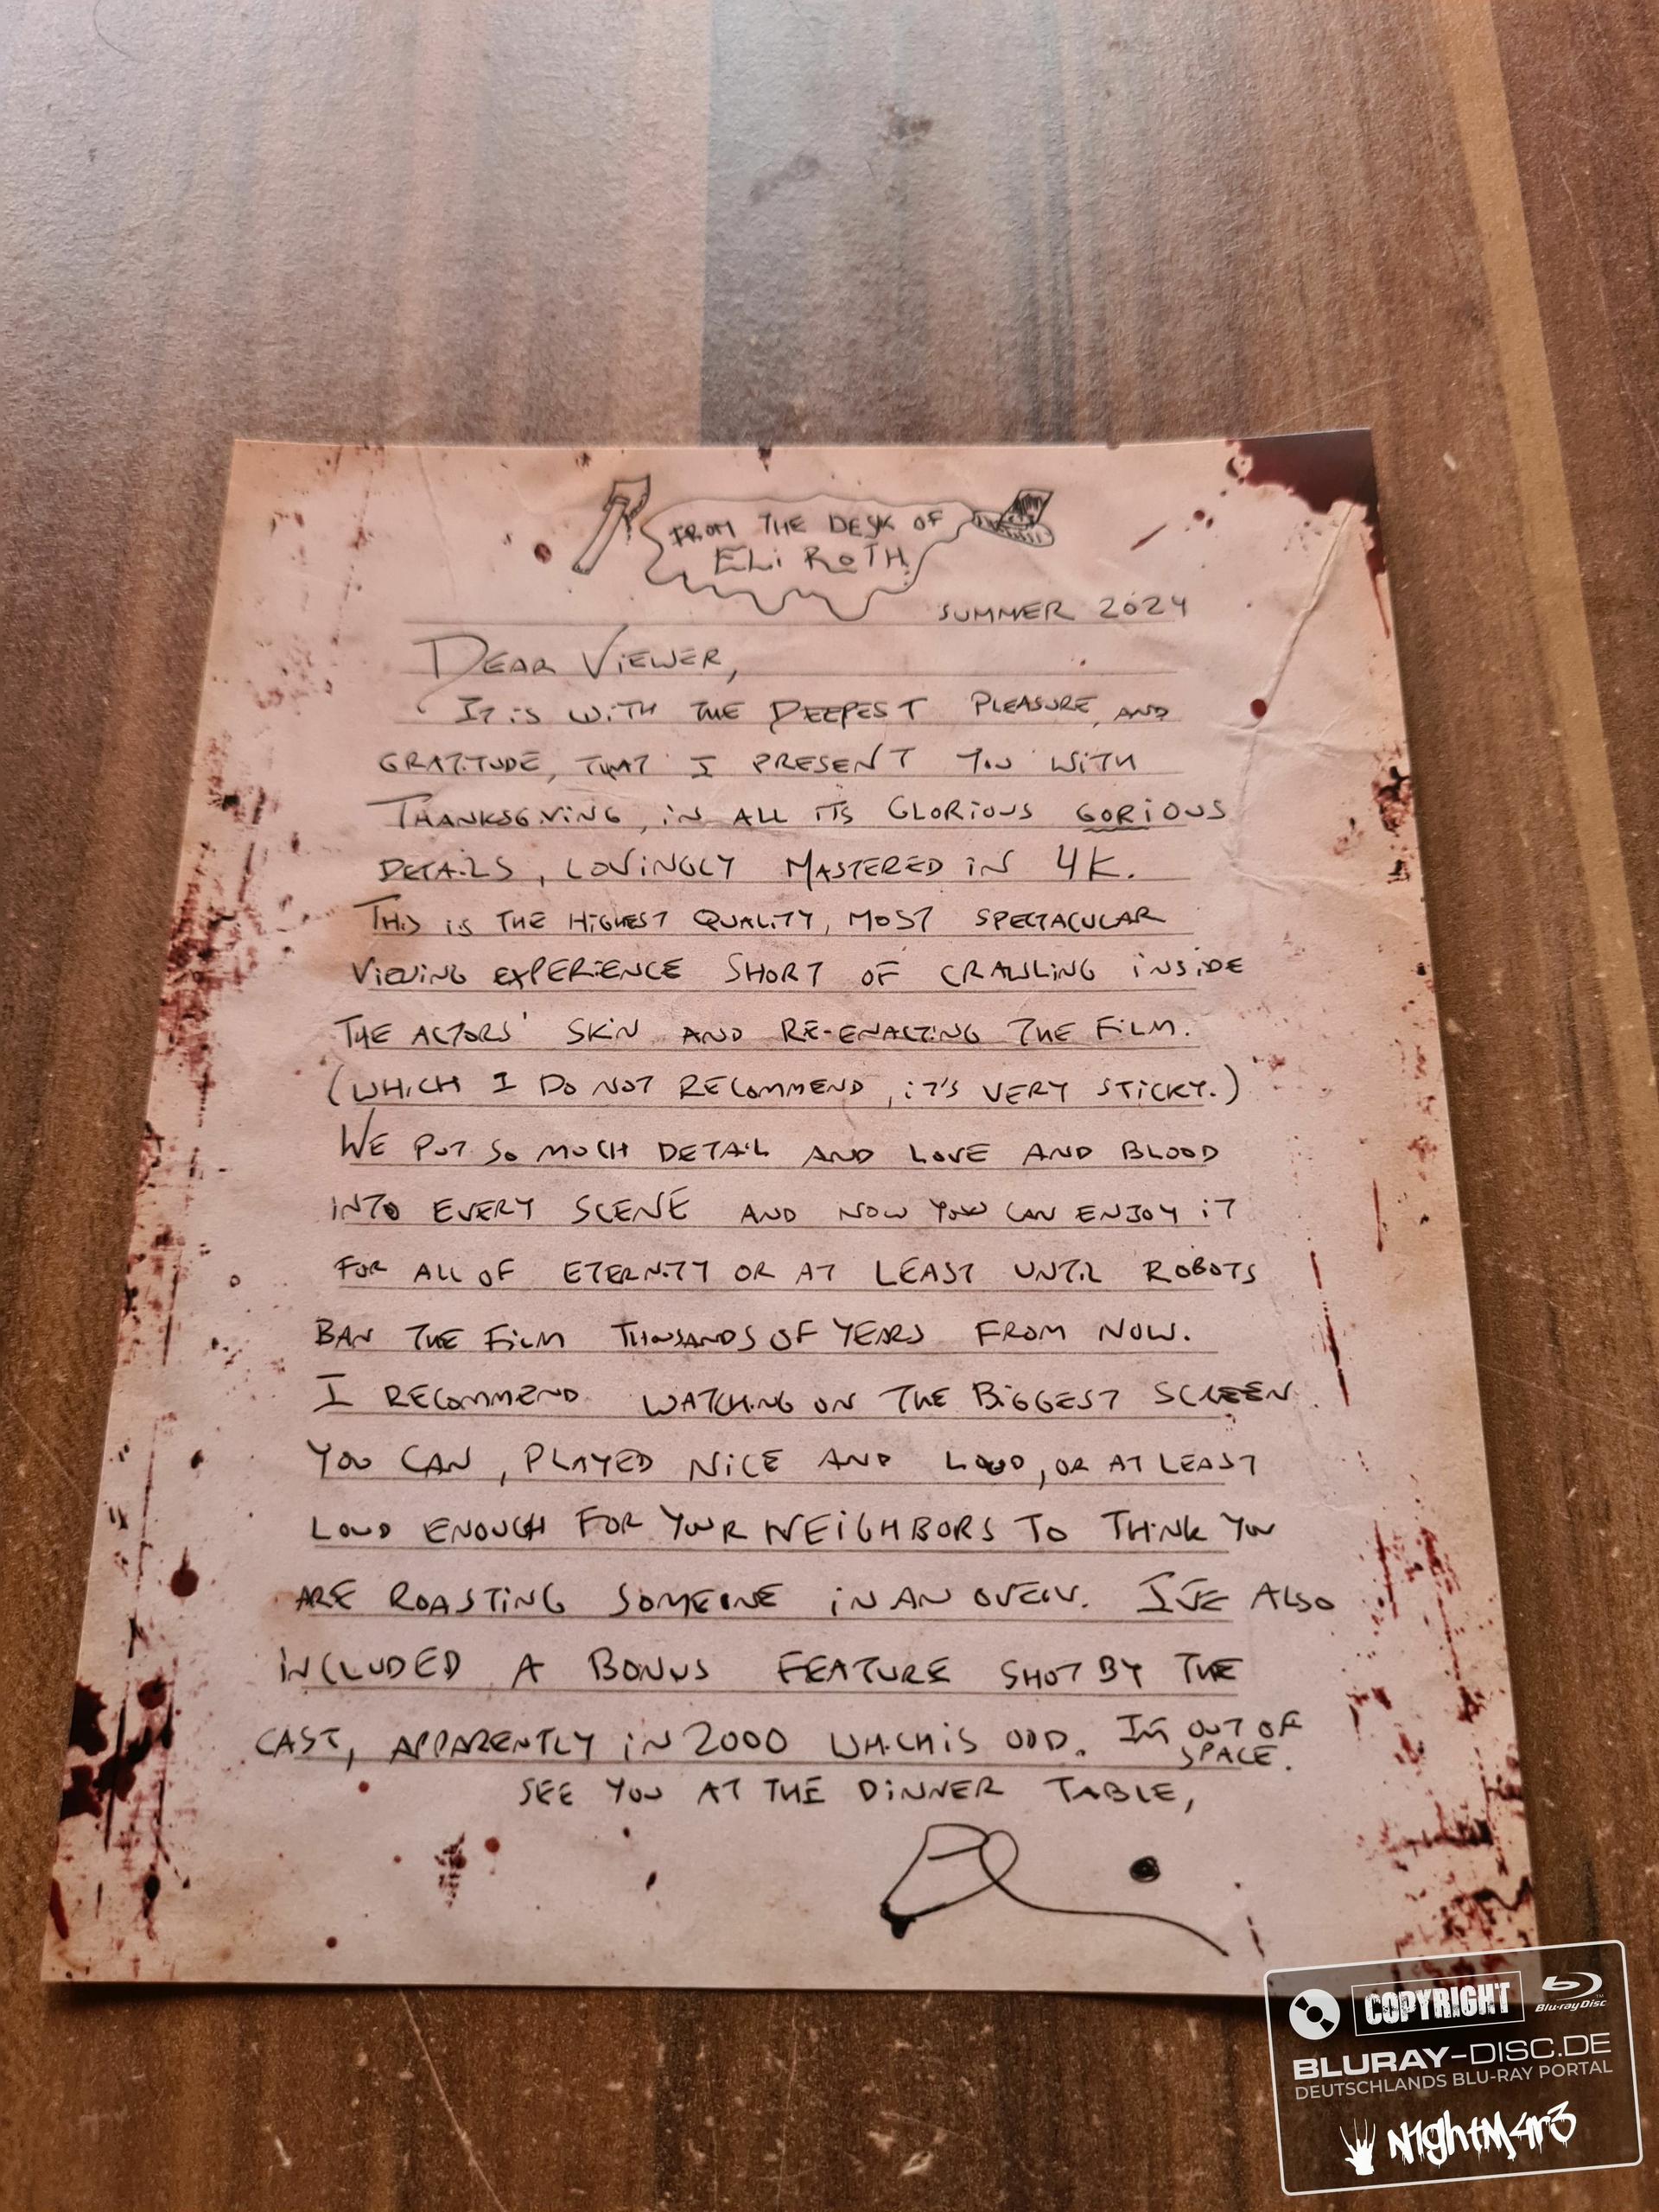 FROM THE DESK OF
ELI ROTH
SUMMER 2024
DEAR VIEWER,
IT IS WITH THE DEEPEST PLEASURE, AND
GRATITUDE, THAT I PRESENT YOU WITH
THANKSGIVING, IN ALL ITS GLORIOUS GORIOUS
DETAILS, LOVINGLY MASTERED IN 4K.
THIS IS THE HIGHEST QUALITY, MOST SPECTACULAR
VIEWING EXPERIENCE SHORT OF CRAWLING INSIDE
THE ACTORS' SKIN AND RE-ENACTING THE FILM.
(WHICH I DO NOT RECOMMEND, IT'S VERY STICKY.)
WE PUT SO MUCH DETAIL AND LOVE AND BLOOD
INTO EVERY SCENE AND NOW YOU CAN ENJOY IT
FOR ALL OF ETERNITY OR AT LEAST UNTIL ROBOTS
BAN THE FILM THOUSANDS OF YEARS FROM NOW.
I RECOMMEND WATCHING ON THE BIGGEST SCREEN
YOU CAN, PLAYED NICE AND LOUD, OR AT LEAST
LOUD ENOUGH FOR YOUR NEIGHBORS TO THINK YOU
ARE ROASTING SOMEONE IN AN OVEN. I'VE ALSO
INCLUDED A BONUS FEATURE SHOT BY THE
CAST, APPARENTLY IN 2000 WHICH IS ODD. I'M OUT OF
SPACE.
SEE YOU AT THE DINNER TABLE,
COPYRIGHT
Blu-ray Disc
BLURAY-DISC.DE
DEUTSCHLANDS BLU-RAY PORTAL
N1ghtM4r3